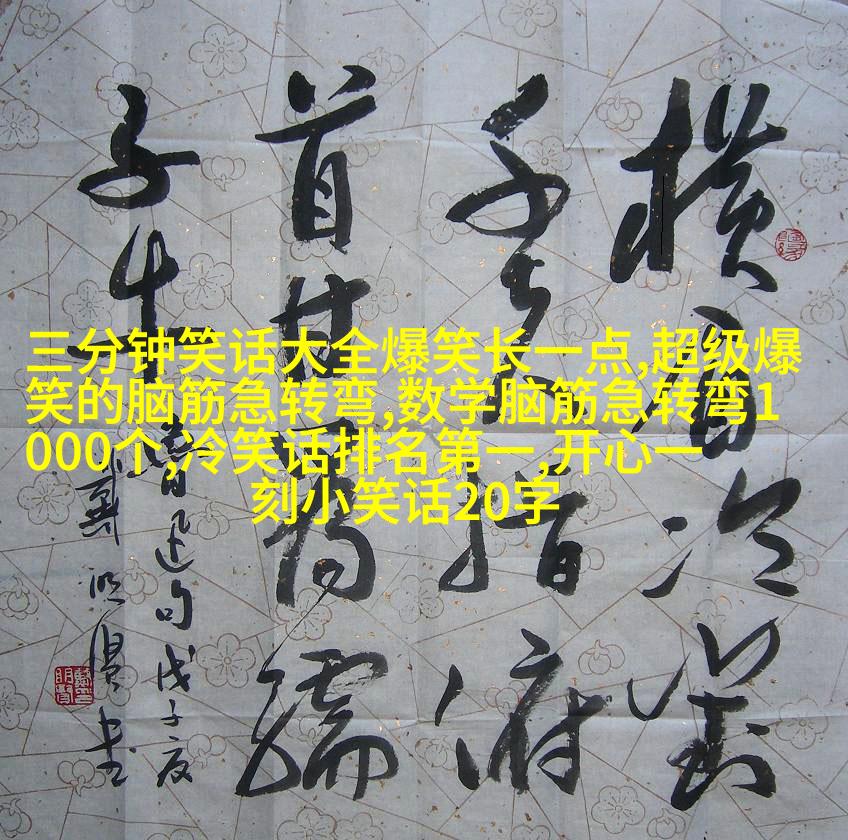 三分钟笑话大全爆笑长一点,超级爆
笑的脑筋急转弯,数学脑筋急转弯1
000个,冷笑话排名第一,开心一
刻小笑话20字
横眉冷對
千夫指俯
首甘為孺
子牛
魯迅句戊子夏